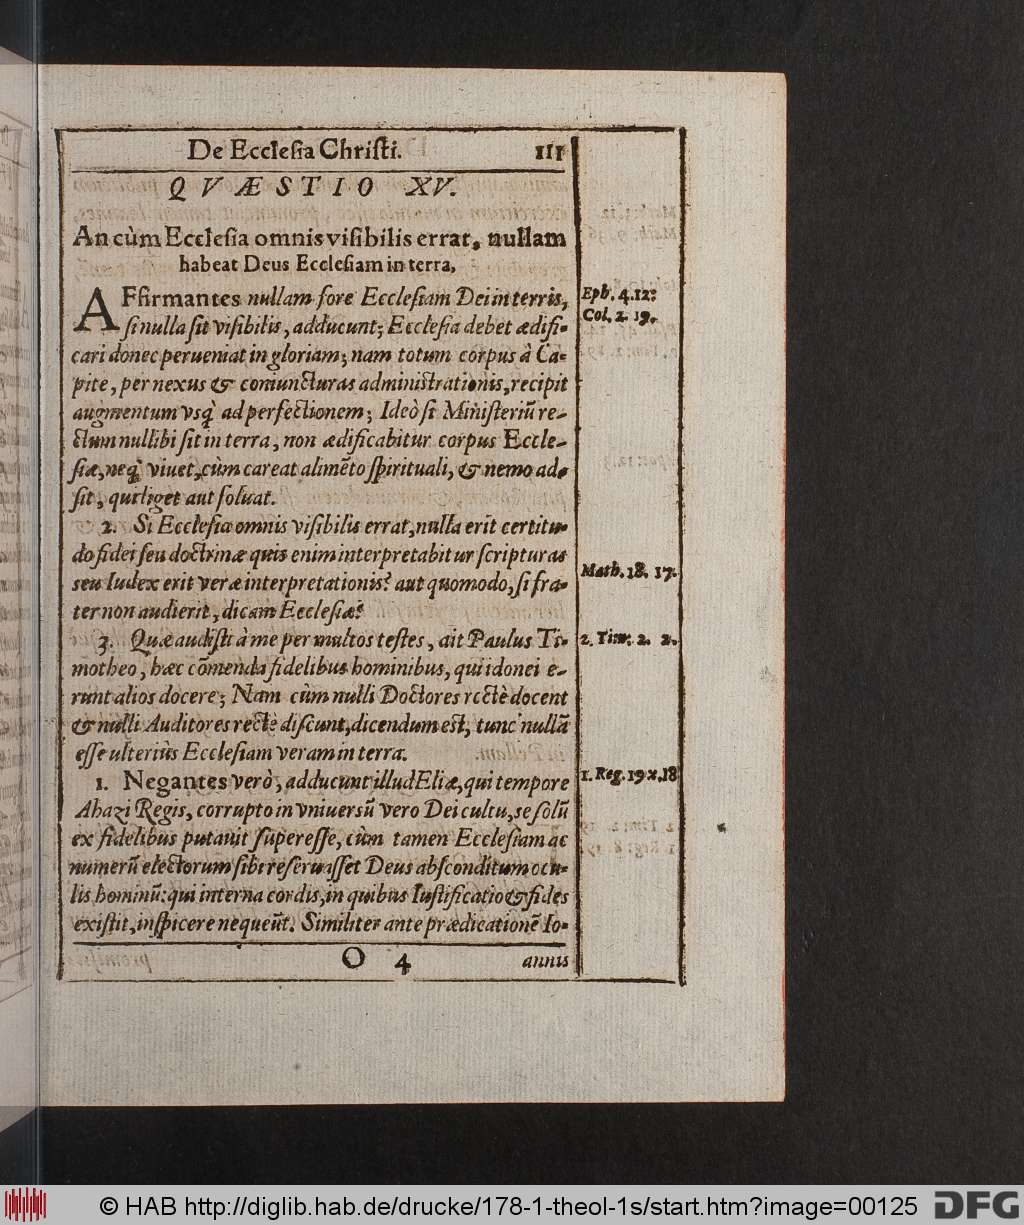 De Ecclesia Christi. 111
QVÆSTIO XV.
An cùm Ecclesia omnis visibilis errat, nullam
habeat Deus Ecclesiam in terra,
AFfirmantes nullam fore Ecclesiam Dei in terris,
si nulla sit visibilis, adducunt; Ecclesia debet ædifi-
cari donec perueniat in gloriam; nam totum corpus à Ca-
pite, per nexus & coniuncturas administrationis, recipit
augmentum vsq; ad perfectionem; Ideò si Ministeriũ re-
ctum nullibi sit in terra, non ædificabitur corpus Eccle-
siæ, neq; viuet, cùm careat alimẽto spirituali, & nemo ad-
sit, qui liget aut soluat.
2. Si Ecclesia omnis visibilis errat, nulla erit certitu-
do fidei seu doctrinæ quis enim interpretabitur scripturas
seu Iudex erit veræ interpretationis? aut quomodo, si fra-
ter non audierit, dicam Ecclesiæ?
3. Quæ audisti à me per multos testes, ait Paulus Ti-
motheo, hæc cõmenda fidelibus hominibus, qui idonei e-
runt alios docere; Nam cùm nulli Doctores rectè docent
& nulli Auditores rectè discunt, dicendum est, tunc nullã
esse ulteriùs Ecclesiam veram in terra.
1. Negantes verò, adducunt illud Eliæ, qui tempore
Ahazi Regis, corrupto in vniuersũ vero Dei cultu, se solũ
ex fidelibus putauit superesse, cùm tamen Ecclesiam ac
numerũ electorum sibi reseruasset Deus absconditum ocu-
lis hominũ: qui interna cordis, in quibus Iustificatio & fides
existit, inspicere nequeũt. Similiter ante prædicationẽ Io-
O 4 annis
Eph. 4. 12:
Col. 2. 19.
Math. 18. 17.
2. Tim: 2. 2.
1. Reg. 19 x. 18
© HAB http://diglib.hab.de/drucke/178-1-theol-1s/start.htm?image=00125 DFG